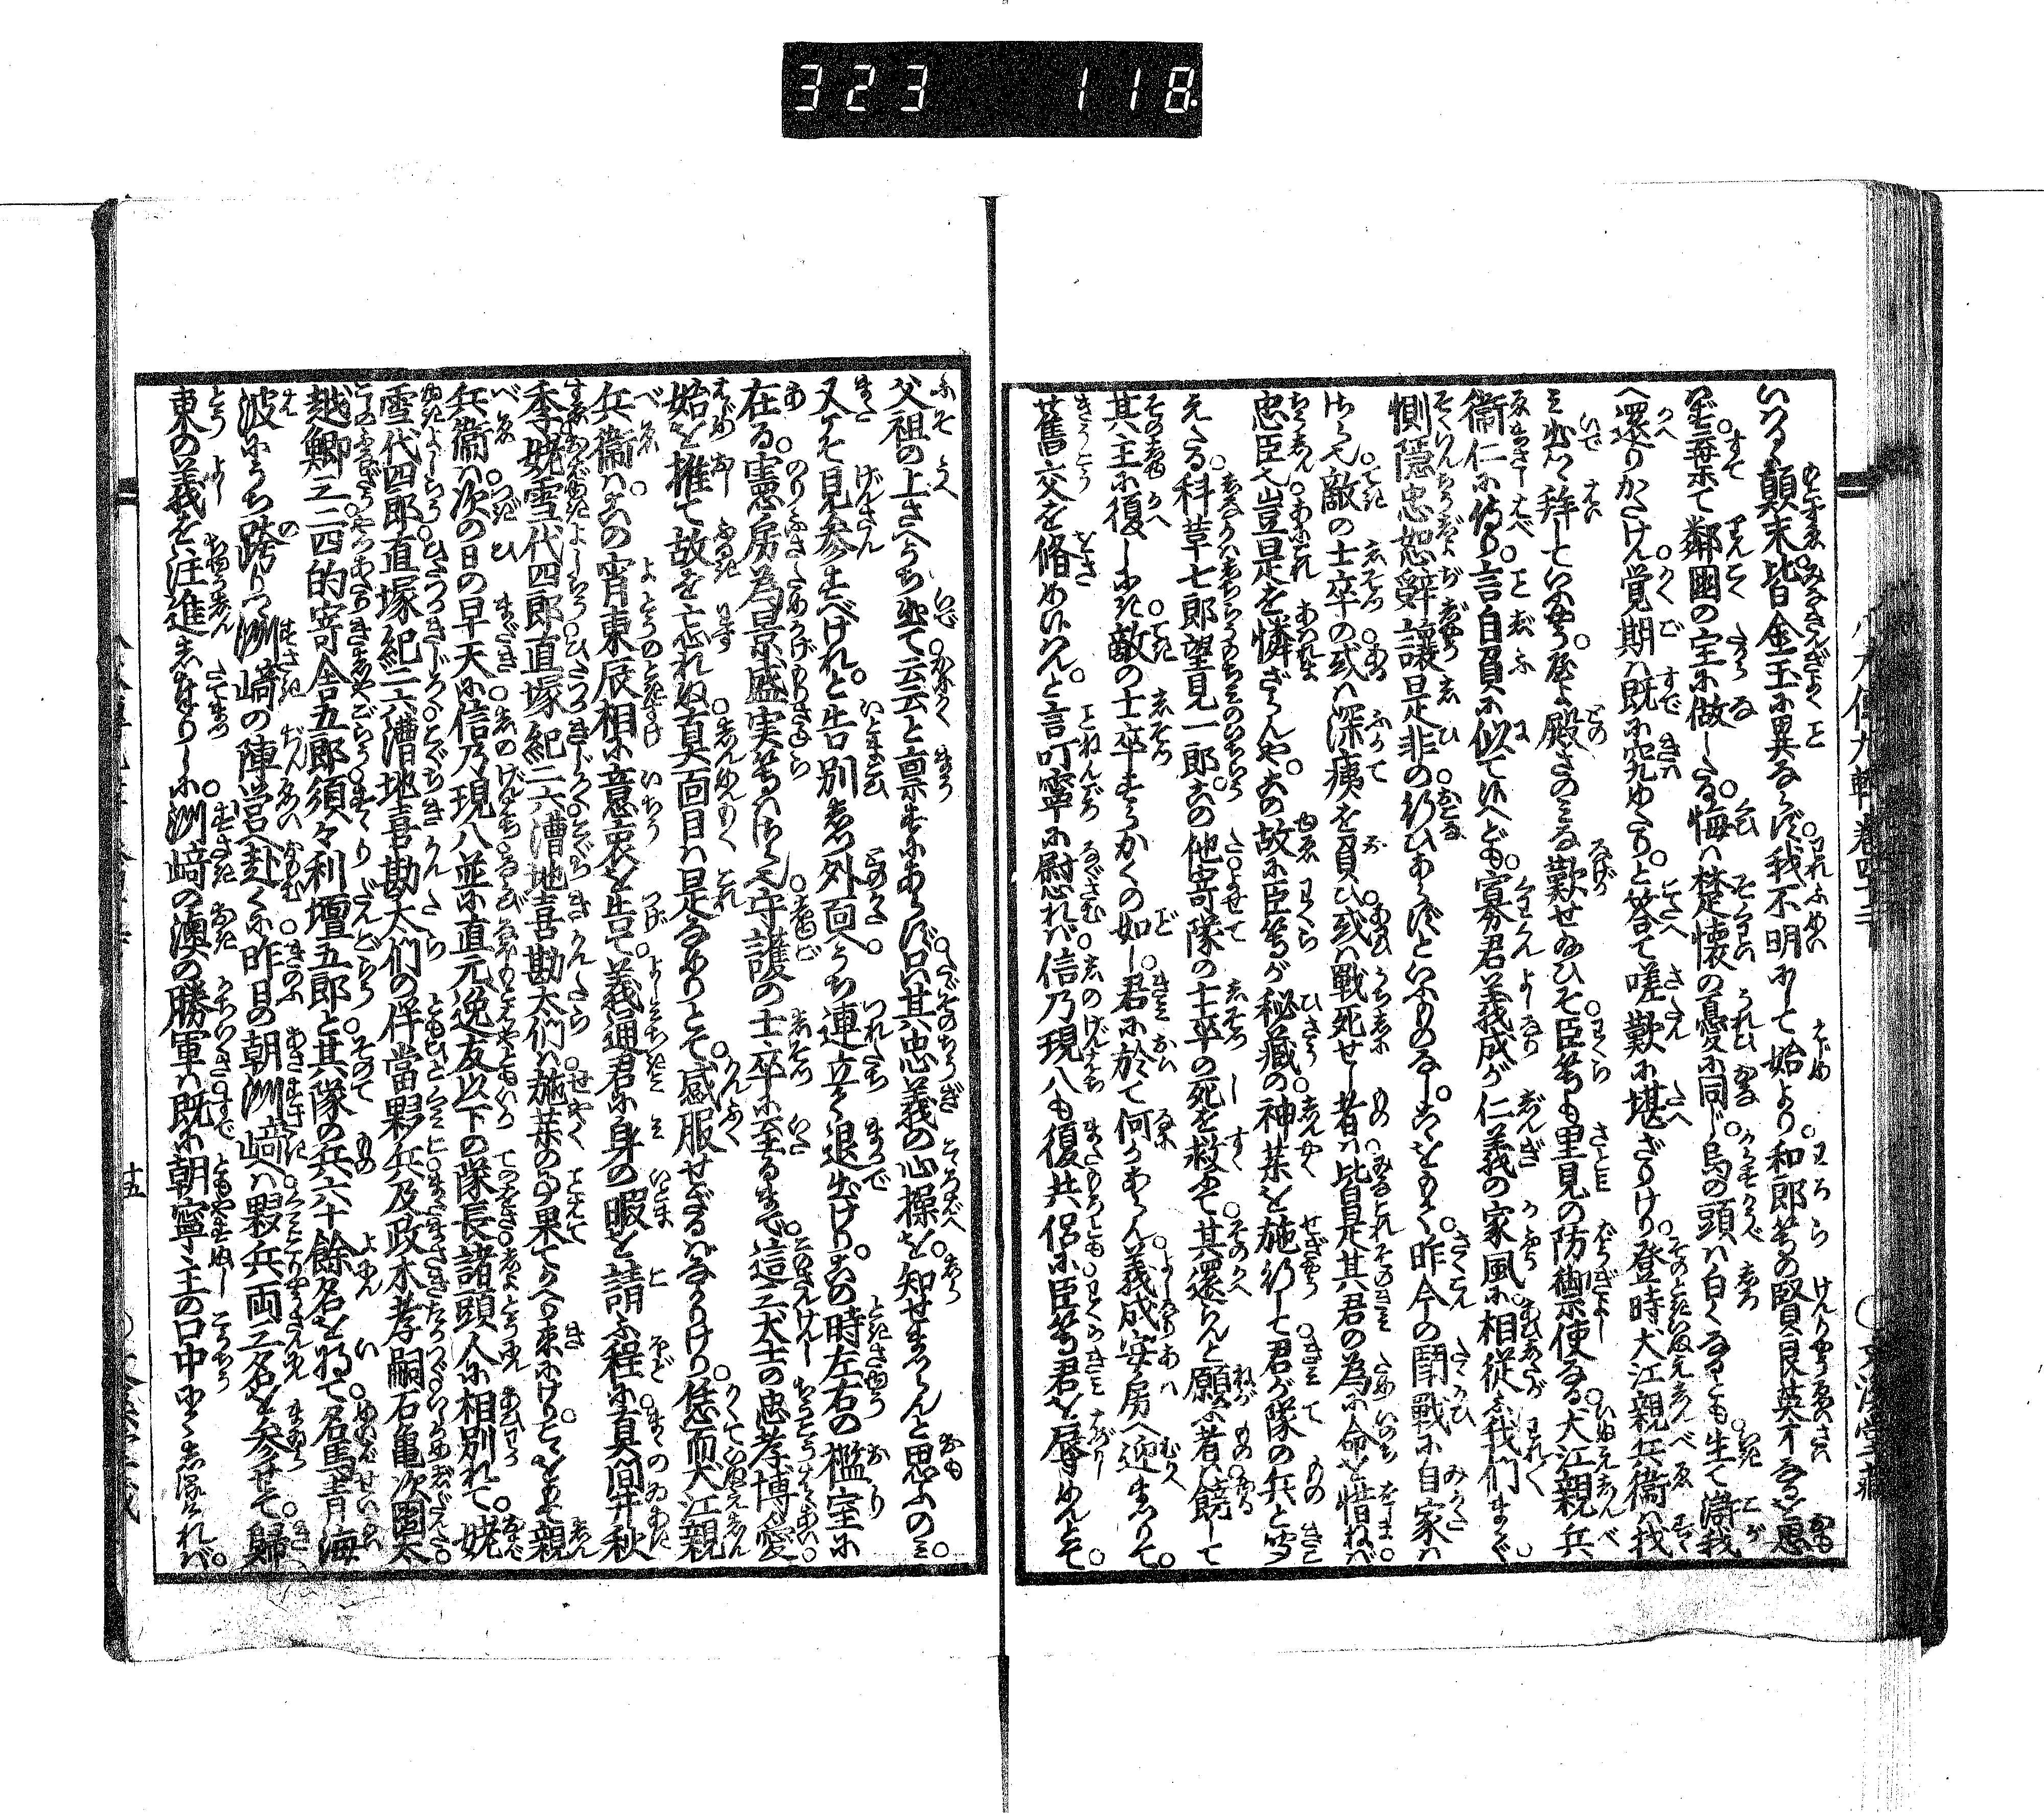 323 118
いへる顛末皆金玉に異ならず我不明にして始より和郎等の賢良英才なるを思
はず棄て鄰國の宝に做したる悔は楚懐の憂に同じ烏の頭は白くなるとも生て滸我
へ還りかたけん覚期は既に究めたりと答て嗟歎に堪ざりけり登時犬江親兵衞は找
み出て拜していふやう屋よ殿さのみな歎せ給ひそ臣等も里見の防禦使なる犬江親兵
衞仁に侍り言自負に似て候へども寡君義成が仁義の家風に相從ふ我們まで
惻隠忠恕辞讓是非の行ひあらずといふものなしこゝをもて昨今の闘戰に自家は
さら也敵の士卒の或は深痍を負ひ或は戰死せし者は皆是其君の為に命を惜ねば
忠臣也豈是を憐ざらんやこの故に臣等が秘藏の神薬を施行して君が隊の兵と聞
えたる科革七郎望見一郎この他寄隊の士卒の死を救ふて其還らんと願ふ者は饒して
其主に復しにき敵の士卒すらかくの如し君に於て何かあらん義成安房へ迎まつりて
舊交を脩め候はんと言叮寧に慰れば信乃現八も復共侶に臣等君を辱めんとて
父祖の上さへうち出て云云と禀すにあらず只其忠義の心操を知せまつらんと思ふのみ
又こそ見參すべけれと告別しつ外面へうち連立て退出けりこの時左右の檻室に
在る憲房為景盛実等はさら也守護の士卒に至るまで這三犬士の忠孝博愛
始を推て故を忘れぬ眞面目は是なりとて感服せざるはなかりけり恁而犬江親
兵衞はこの宵東辰相に意衷を告て義通君に身の暇を請ふ程に眞間井秋
季姥雪代四郎直塚紀二六漕地喜勘太們は施薬の事果てかへり來にけりこゝをもて親
兵衞は次の日の早天に信乃現八並に直元逸友以下の隊長諸頭人に相別れて姥
雪代四郎直塚紀二六漕地喜勘太們の伴當夥兵及政木孝嗣石亀次團太
越鯽三二四的寄舎五郎須々利壇五郎と其隊の兵六十餘名を将て名馬青海
波にうち跨りつ洲﨑の陣営へ赴くに昨日の朝洲﨑へは夥兵両三名を參せて歸
東の義を注進しぬるなりしに洲﨑の澳の勝軍は既に朝寧主の口中に
十五